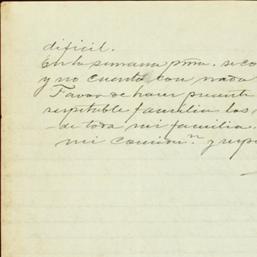 dificil.
En la semana pma. se co
y no cuento con nada
Favor de hacer presente
respetable familia los
de toda mi familia.
mi y respe